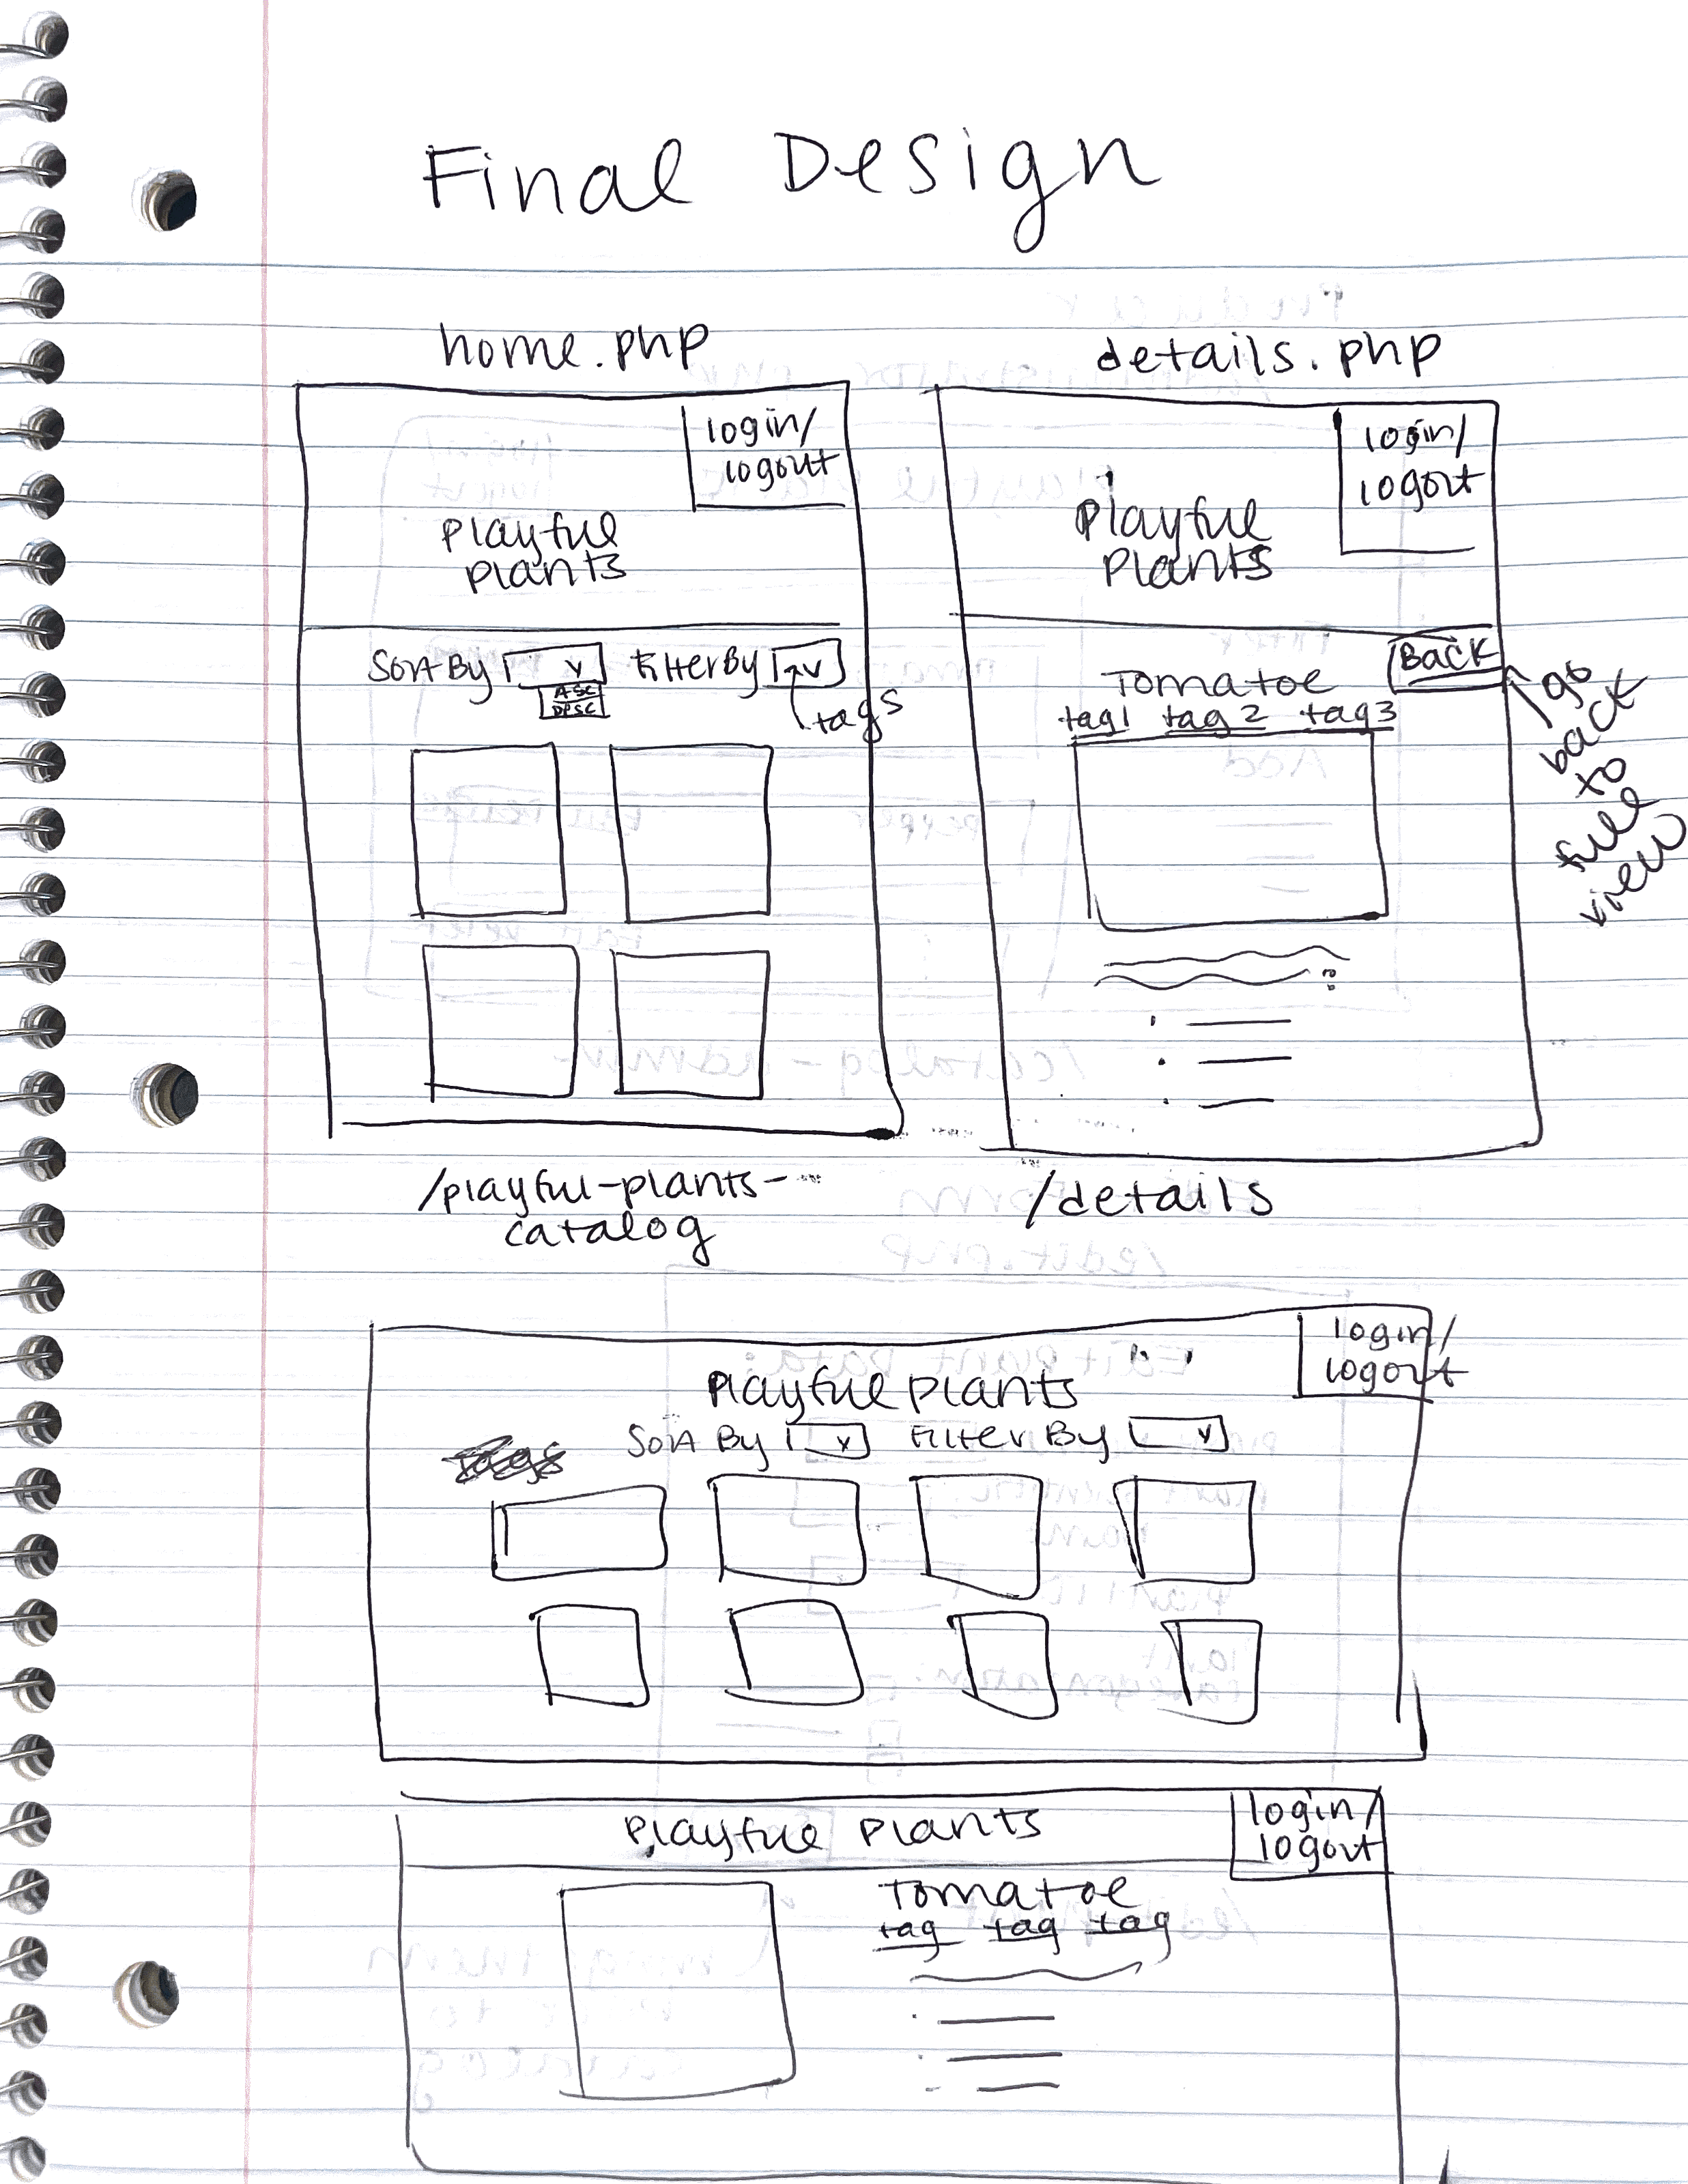 Final Design
home.php
login/
logout
playful
plants
Sort By v Filter By v
ASC
DESC
tags
/playful-plants-
catalog
details.php
login/
logout
playful
plants
Back
Tomatoe
tag1 tag 2 tag3
go
back
to
full
view
/details
login/
logout
playful plants
Sort By v Filter By v
playful plants
login/
logout
Tomatoe
tag tag tag